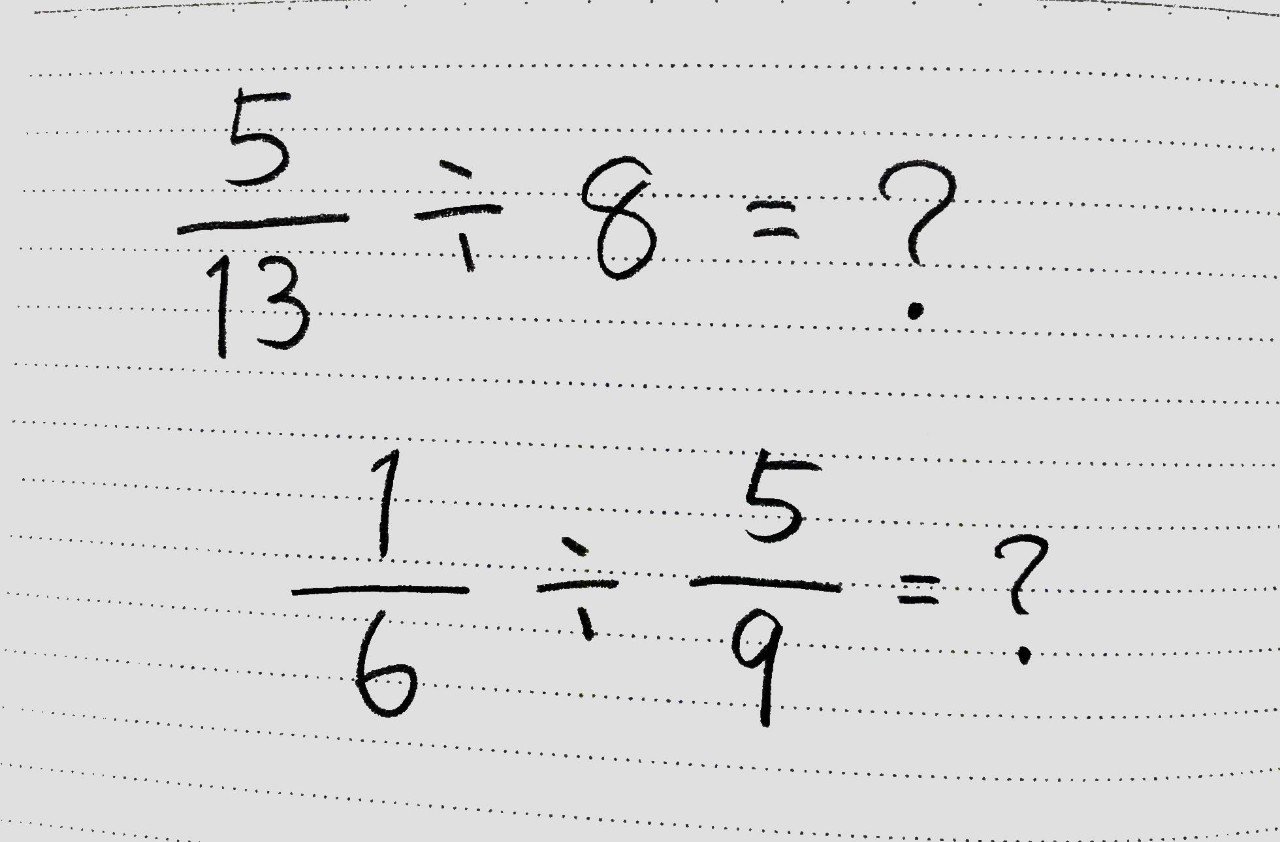 5/13 ÷ 8 = ?
1/6 ÷ 5/9 = ?